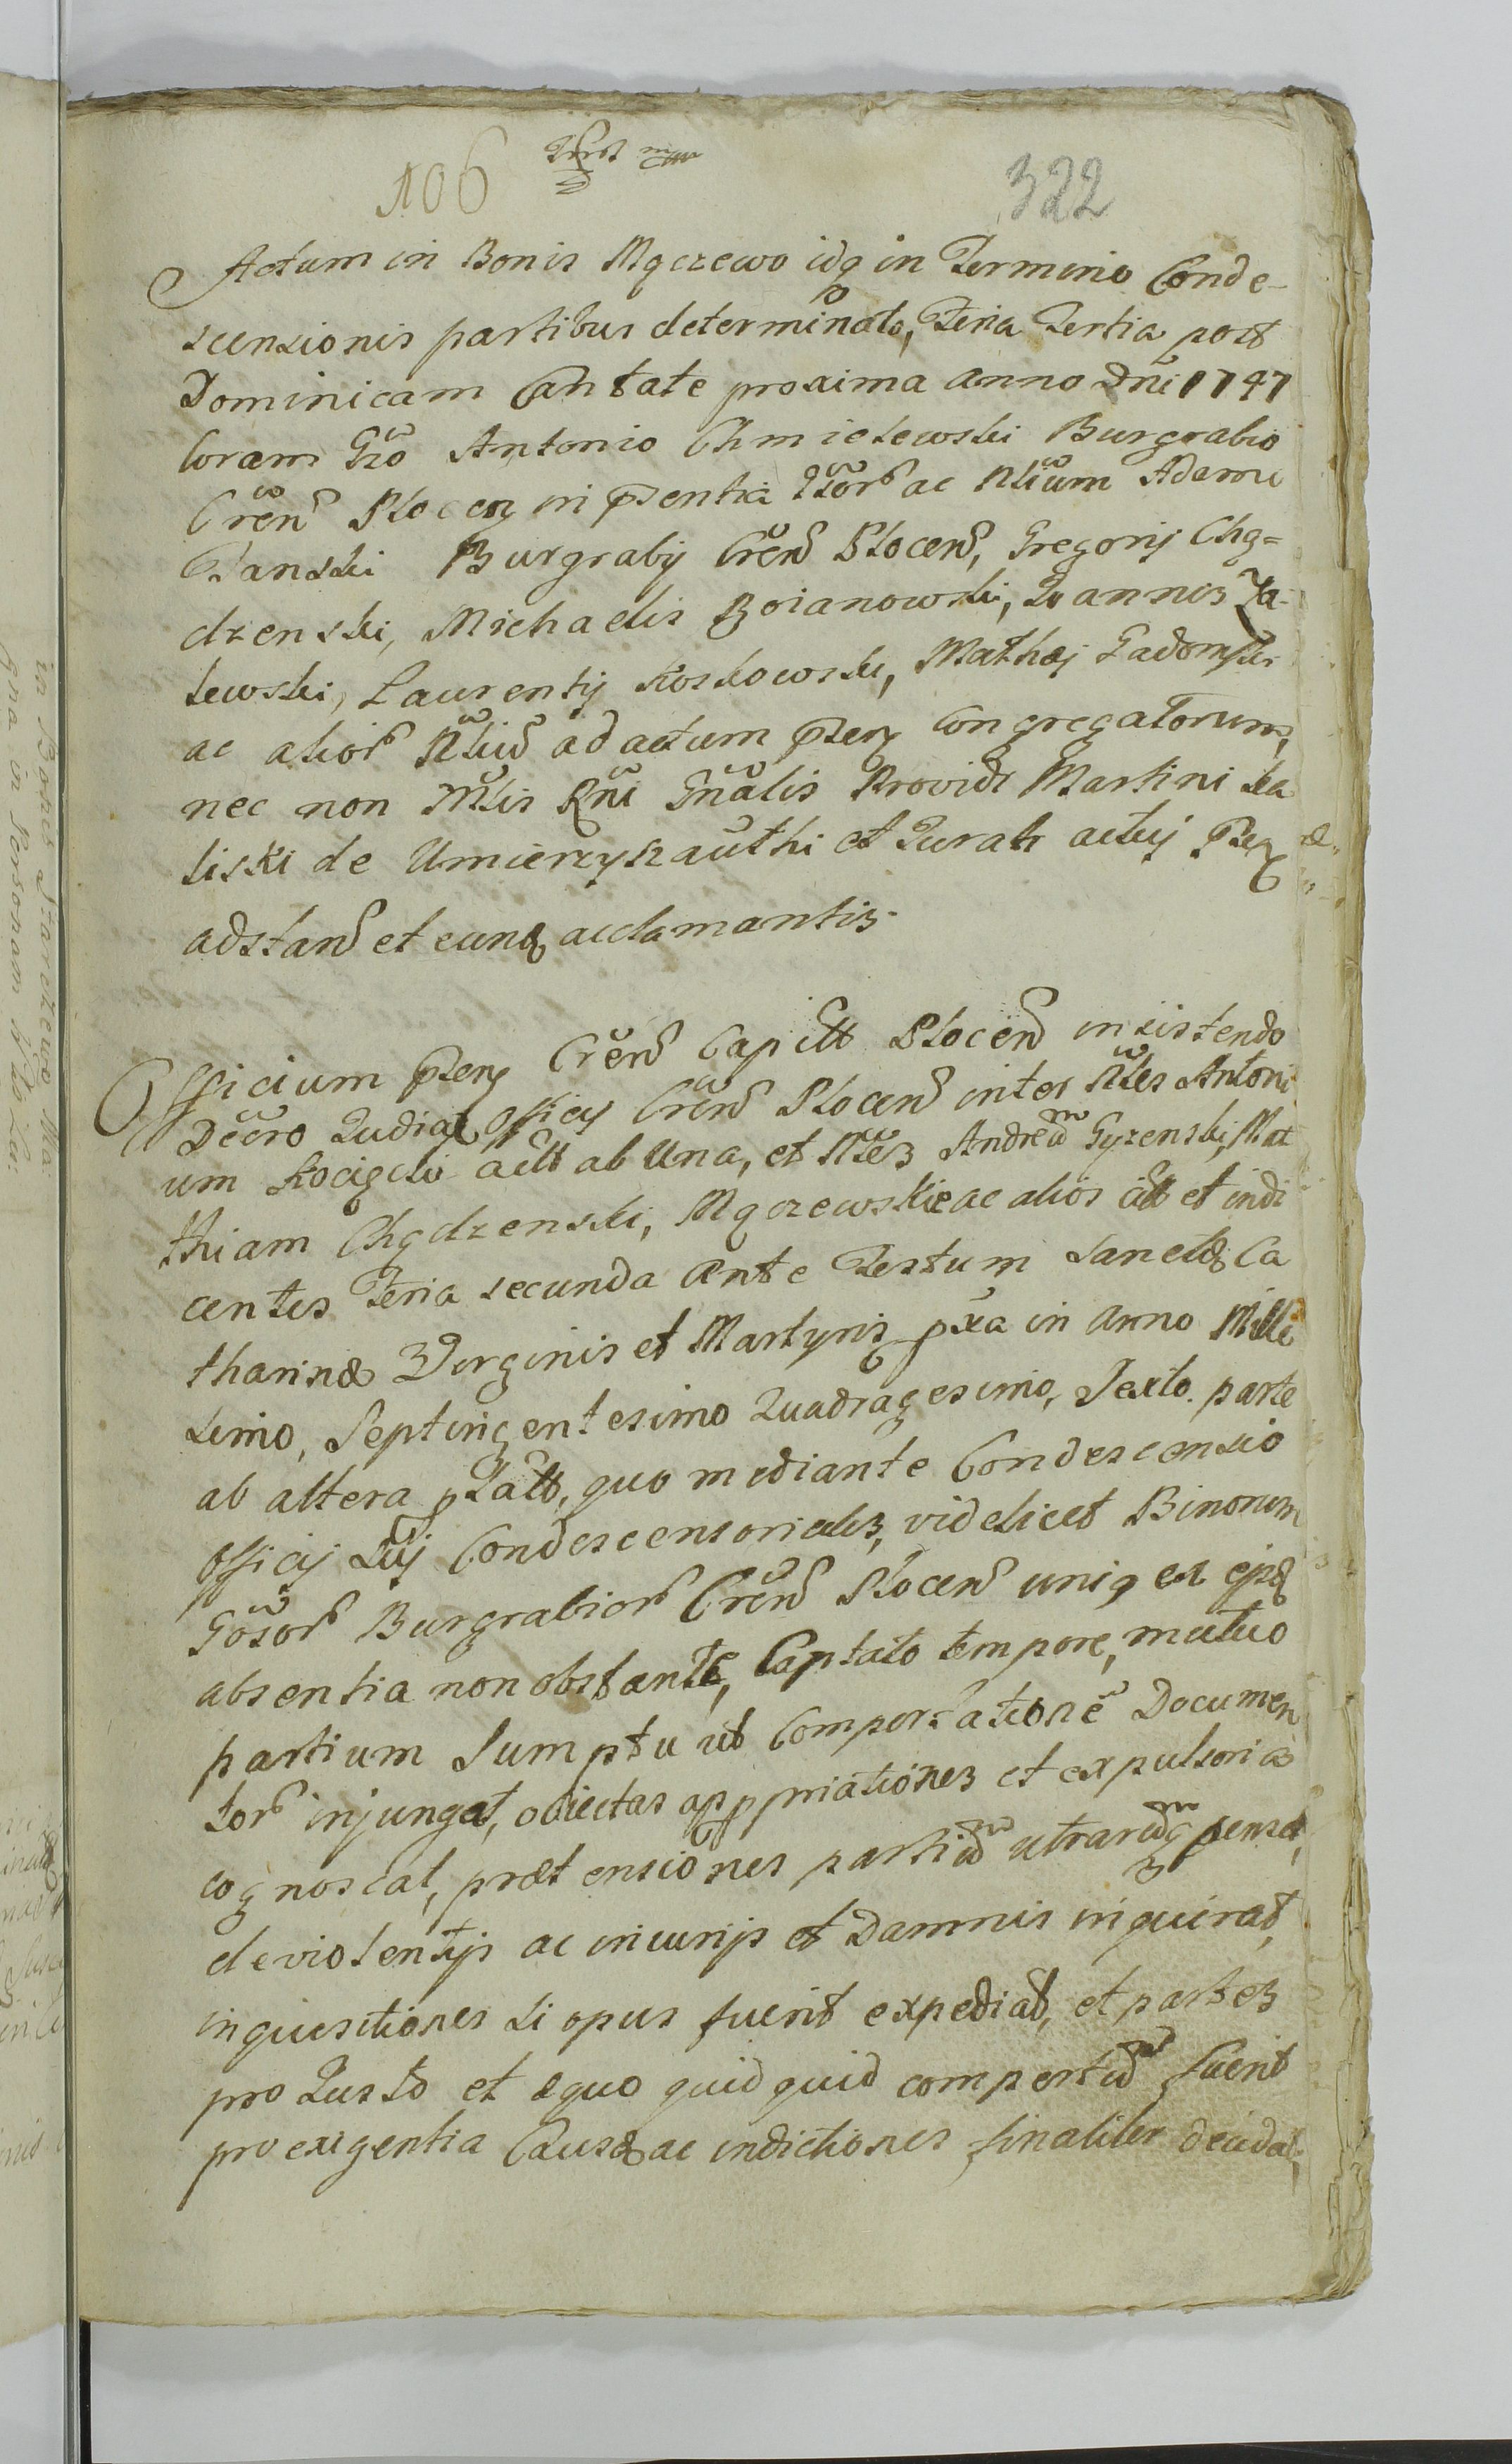 106
322
Actum in Bonis Mączewo idq in Termino Conde-
scensionis partibus determinato, Feria Tertia post
Dominicam Cantate proxima Anno Dni 1747
Coram Gso Antonio Chmielewski Burgrabio
Cren Plocen in psentia Gsor ac Nlium Adami
Cianski Burgrabij Cren Plocen, Gregorij Chą=
dzenski, Michaelis Boianowski, Joannis Za-
lewski, Laurentij Koskowski, Mathej Gadomski
ac alior Nliu ad actum psen Congregatorum,
nec non Mlis Rni Gnalis Providi Martini Ka
liski de Umierzysz authi et Jurati actuj psen
adstan et eunq acclamantis.
Officium psen Cren Capitt Plocen insistendo
Decro Judicial Officij Cren Plocen inter Nles Antoni
um Kocięcki actt ab Una, et Nles Andream Gyzenski, Mat
thiam Chądzenski, Mączewskie ac alios citt et indi
centes Feria secunda Ante Festum Sanctæ Ca
tharinæ Virginis et Martyris pxa in Anno Mille
simo, Septingentesimo Quadragesimo, Sexto. parte
ab altera plato, quo mediante Condescensio
Officij Sui Condescensorialis, videlicet Binorum
Gosor Burgrabior Cren Plocen uniq et ejusd
absentia non obstante, Captato tempore, mutuo
partium Sumptu ut Comportatione Documen
tor injungat, obiectas appropriationes et expulsorias
cognoscat, prætensiones partiu utrarumq penset,
de violentijs ac iniurijs et Damnis inquirat,
inquisitiones si opus fuerit expediat, et partes
pro Justo et æquo quidquid compertum fuerit
pro exigentia Causæ ac indictiones finaliter decidat,